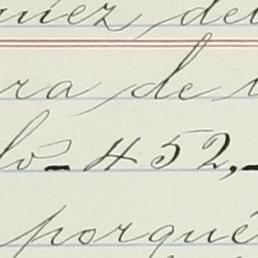 uez del
ra de l
lo - 452,-
porqué